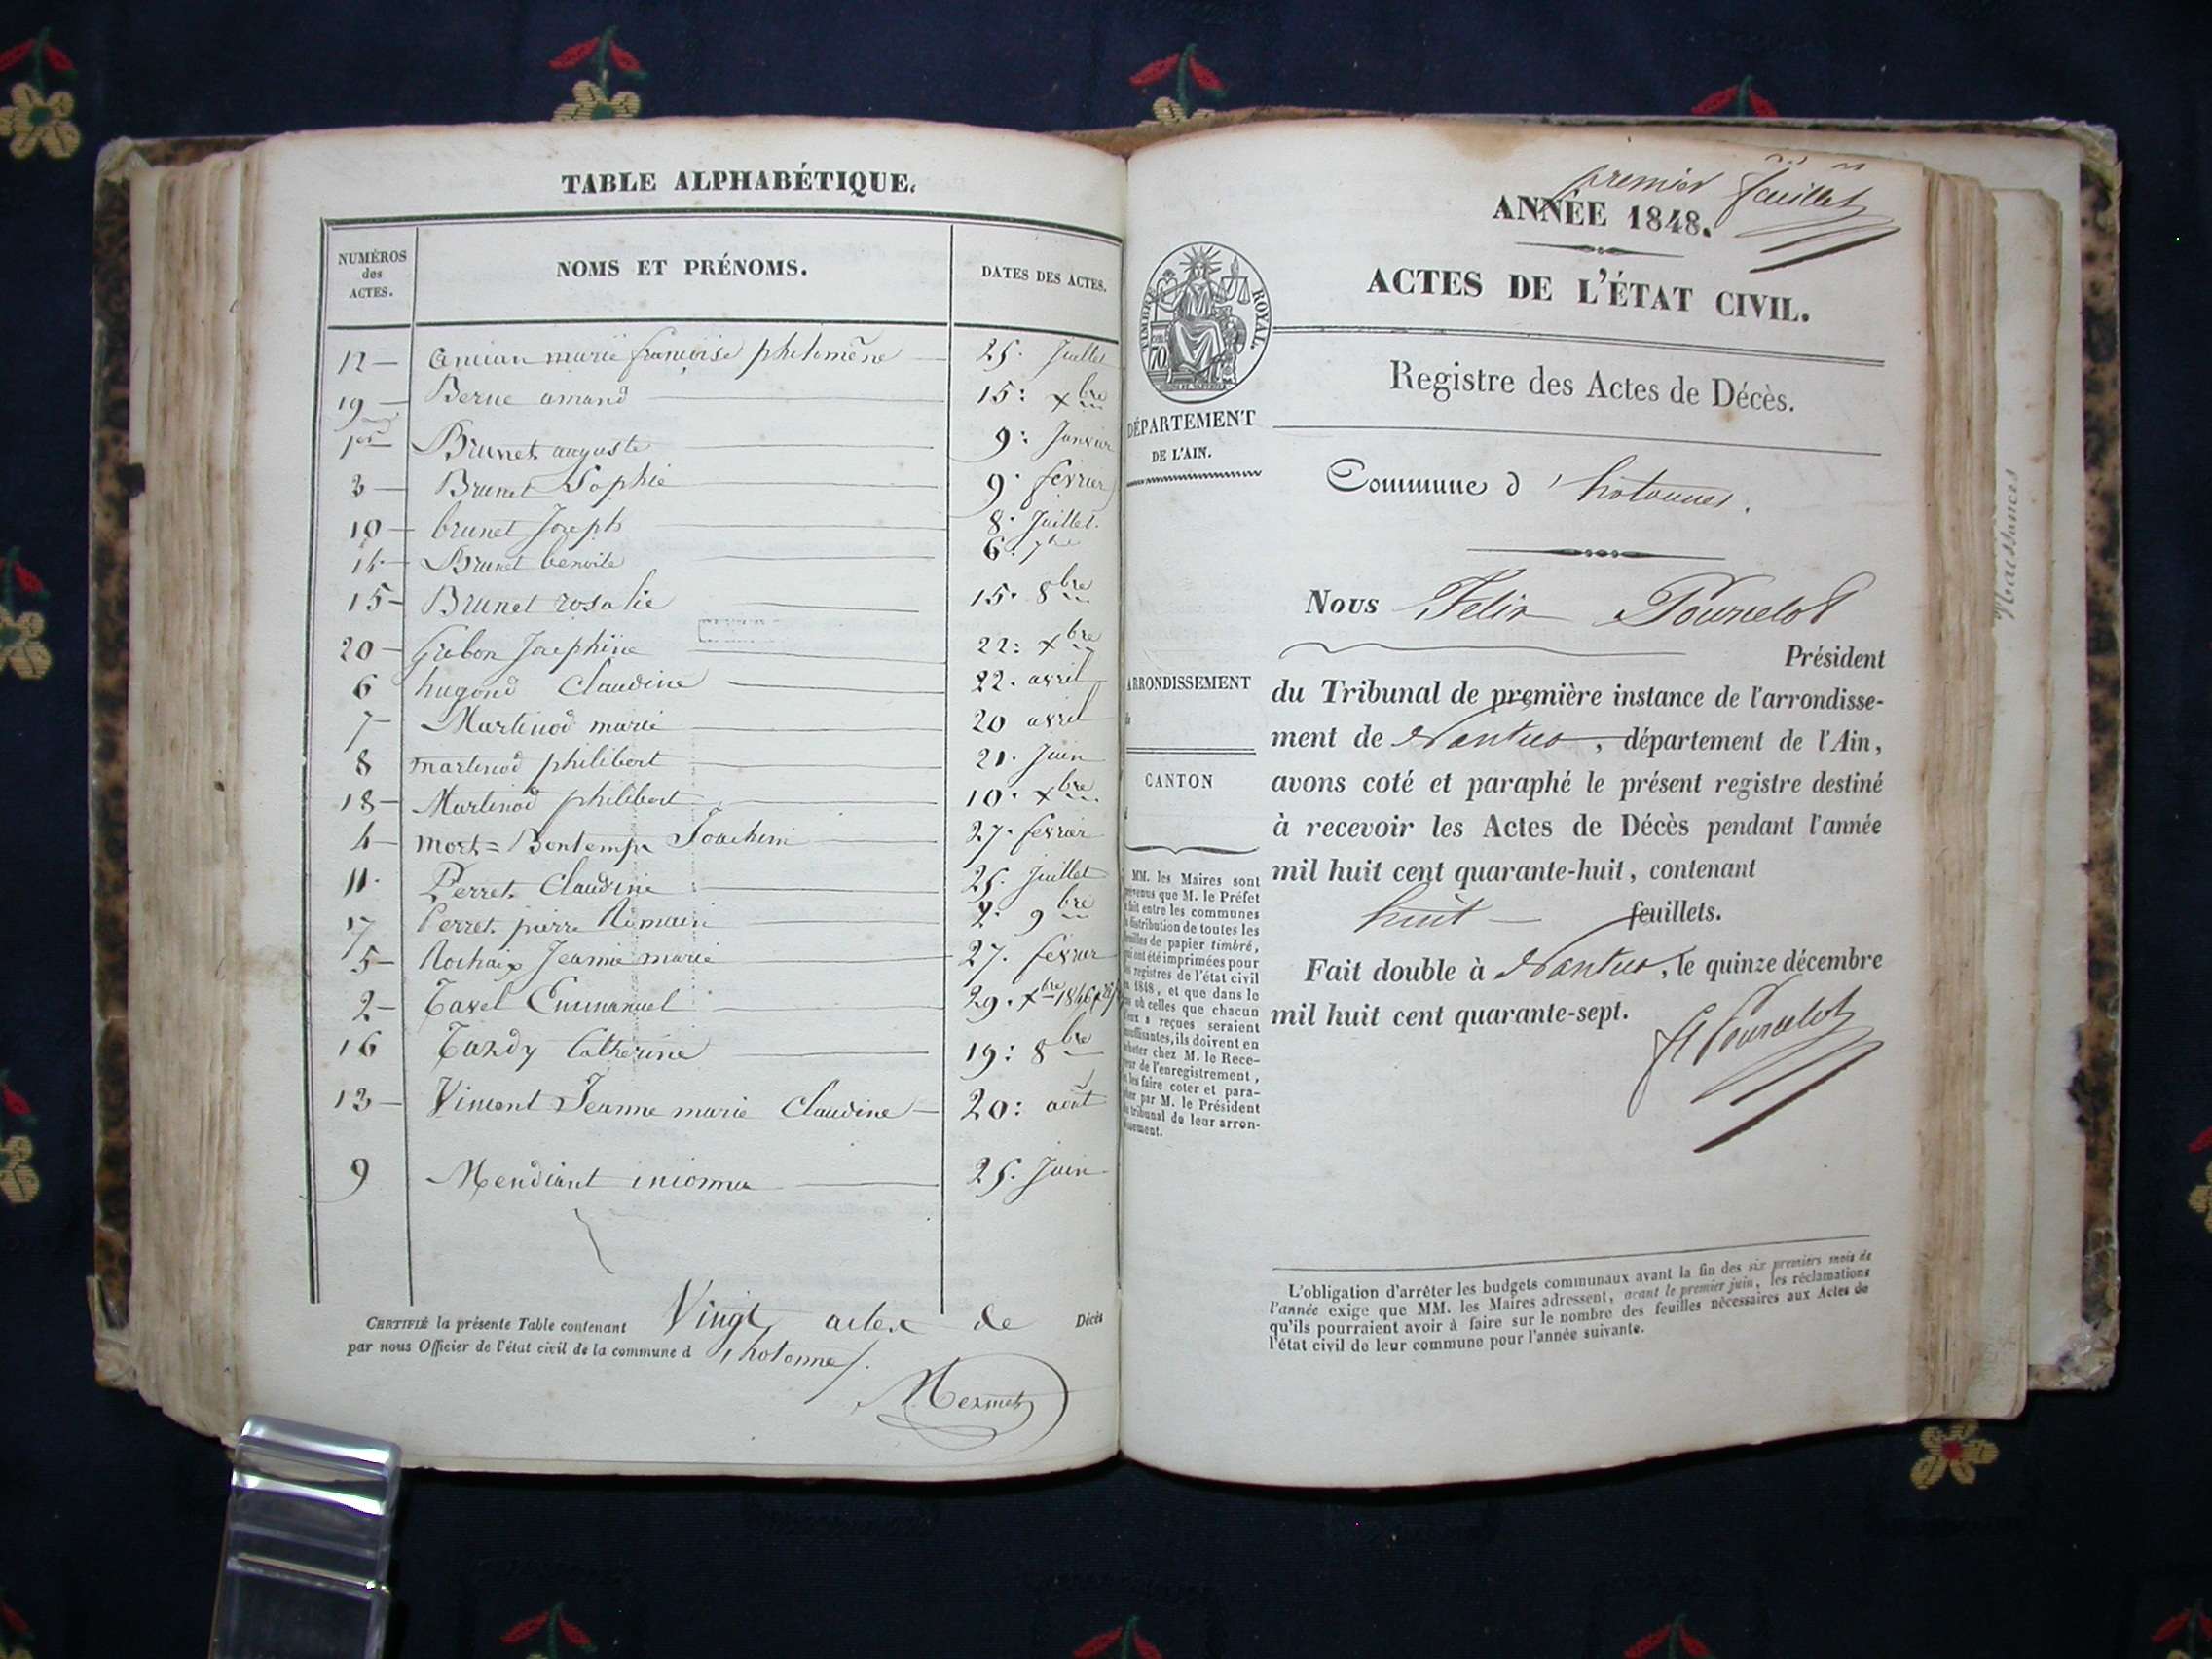 TABLE ALPHABÉTIQUE.
NUMÉROS des ACTES. NOMS ET PRÉNOMS. DATES DES ACTES.
12 — marie françoise philomène — 25. Juillet
19 — Berne amand — 15: Xbre
1er — Brunet auguste — 9: Janvier
3 — Brunet Sophie — 9. fevrier
10 — brunet Joseph — 8. Juillet.
14 — Brunet benoite — 6. 7bre
15 — Brunet rosalie — 15. 8bre
20 — Josephine — 22: Xbre
6 hugond Claudine — 22. avril
7 — Martinod marie — 20 avril
8 martinod philibert — 21. Juin
18 — Martinod philibert — 10. Xbre
4 — mort = Bontemps Joachim — 27. fevrier
11. Perret Claudine — 25. Juillet
17 Perret pierre Romain — 2. 9bre
5 — Rochaix Jeanne marie — 27. fevrier
2 — Tavel Emmanuel — 29. Xbre 1846
16 Tardy Catherine — 19: 8bre
13 — Vincent Jeanne marie Claudine — 20: août
9 Mendiant inconnu — 25. Juin
CERTIFIÉ la présente Table contenant Vingt actes de Décès
par nous Officier de l'état civil de la commune d'hotonnes.
Mermet
premier feuillet
ANNÉE 1848.
ACTES DE L'ÉTAT CIVIL.
TIMBRE ROYAL.
70
Registre des Actes de Décès.
DÉPARTEMENT
DE L'AIN.
Commune d'hotonnes.
Nous Felix Pournelot
Président
ARRONDISSEMENT
du Tribunal de première instance de l'arrondisse-
ment de Nantua, département de l'Ain,
avons coté et paraphé le présent registre destiné
à recevoir les Actes de Décès pendant l'année
mil huit cent quarante-huit, contenant
huit — feuillets.
Fait double à Nantua, le quinze décembre
mil huit cent quarante-sept.
CANTON
MM. les Maires sont
prévenus que M. le Préfet
fait entre les communes
la distribution de toutes les
feuilles de papier timbré,
qui ont été imprimées pour
les registres de l'état civil
en 1848, et que dans le
cas où celles que chacun
d'eux a reçues seraient
insuffisantes, ils doivent en
acheter chez M. le Rece-
veur de l'enregistrement,
et les faire coter et para-
pher par M. le Président
du tribunal de leur arron-
dissement.
L'obligation d'arrêter les budgets communaux avant la fin des six premiers mois de
l'année exige que MM. les Maires adressent, avant le premier juin, les réclamations
qu'ils pourraient avoir à faire sur le nombre des feuilles nécessaires aux Actes de
l'état civil de leur commune pour l'année suivante.
Naissances